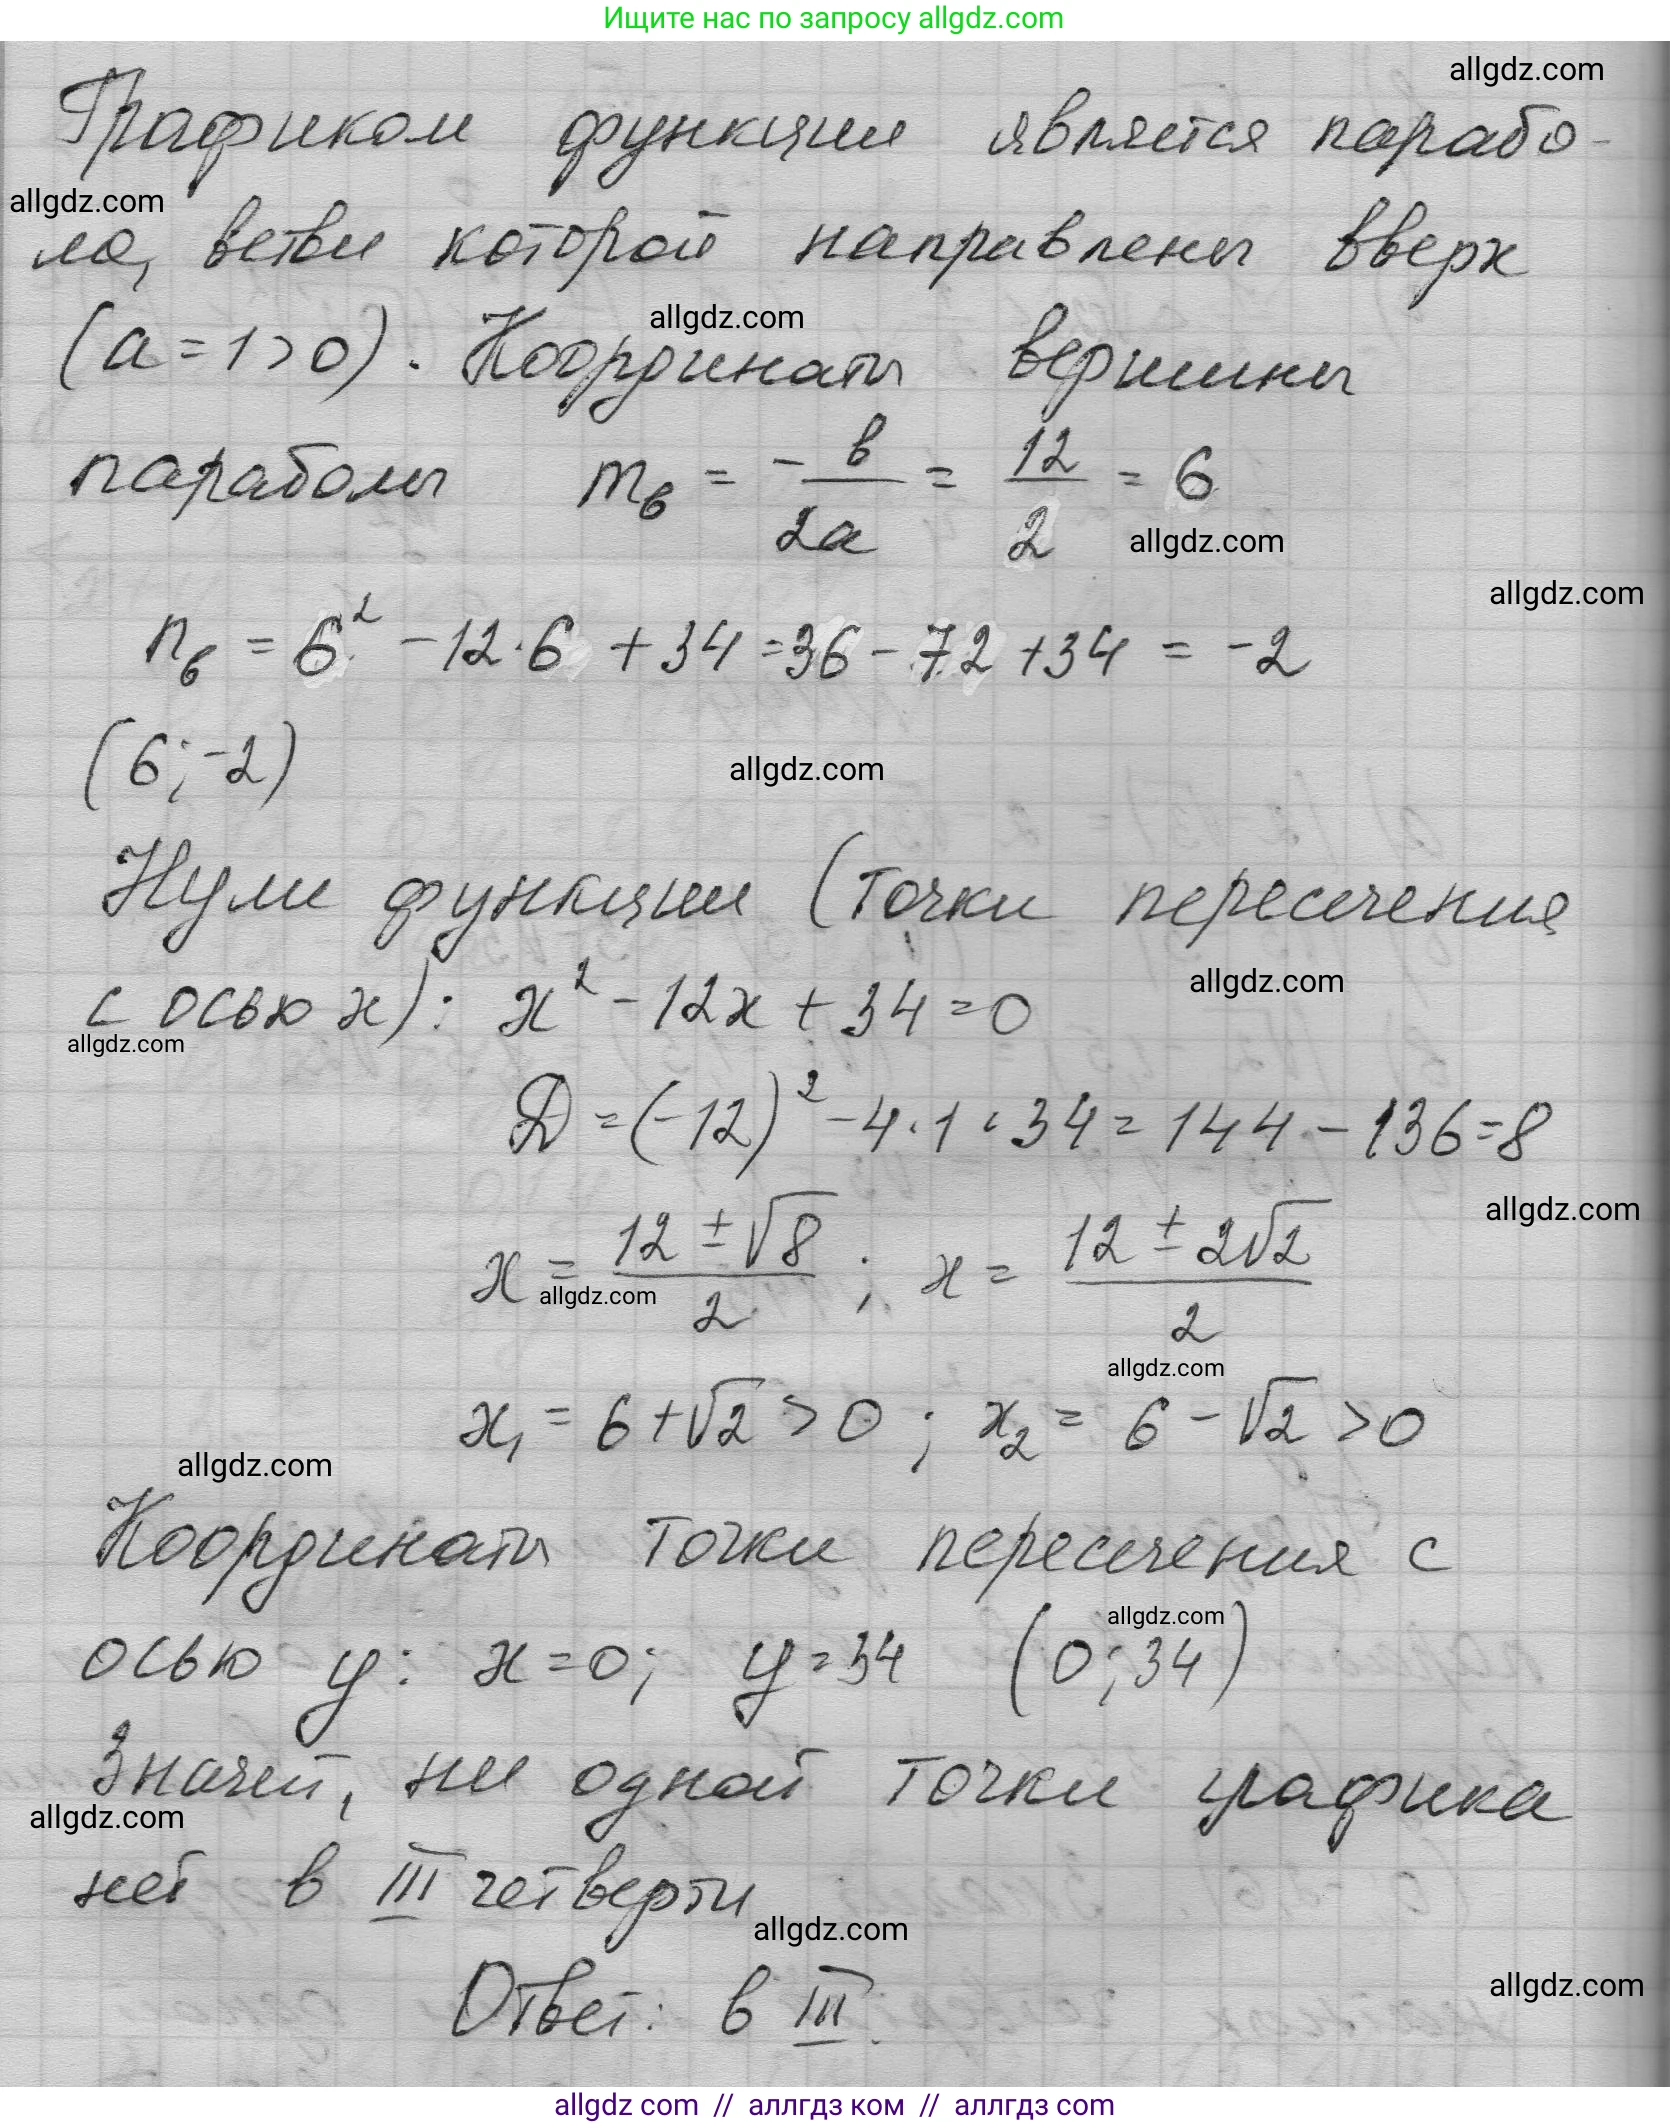 Ищите нас по запросу allgdz.com
allgdz.com
Графиком функции является парабо-
allgdz.com
ла, ветви которой направлены вверх
allgdz.com
(a = 1 > 0). Координаты вершины
параболы m_в = - b/2a = 12/2 = 6
allgdz.com
allgdz.com
n_в = 6² - 12·6 + 34 = 36 - 72 + 34 = -2
(6; -2)
allgdz.com
Нули функции (точки пересечения
allgdz.com
с осью x): x² - 12x + 34 = 0
allgdz.com
D = (-12)² - 4·1·34 = 144 - 136 = 8
allgdz.com
x = (12 ± √8)/2 ; x = (12 ± 2√2)/2
allgdz.com
allgdz.com
x₁ = 6 + √2 > 0 ; x₂ = 6 - √2 > 0
allgdz.com
Координаты точки пересечения с
allgdz.com
осью y: x = 0; y = 34 (0; 34)
Значит, ни одной точки графика
allgdz.com
нет в III четверти
allgdz.com
allgdz.com
Ответ: в III.
allgdz.com // аллгдз ком // аллгдз com